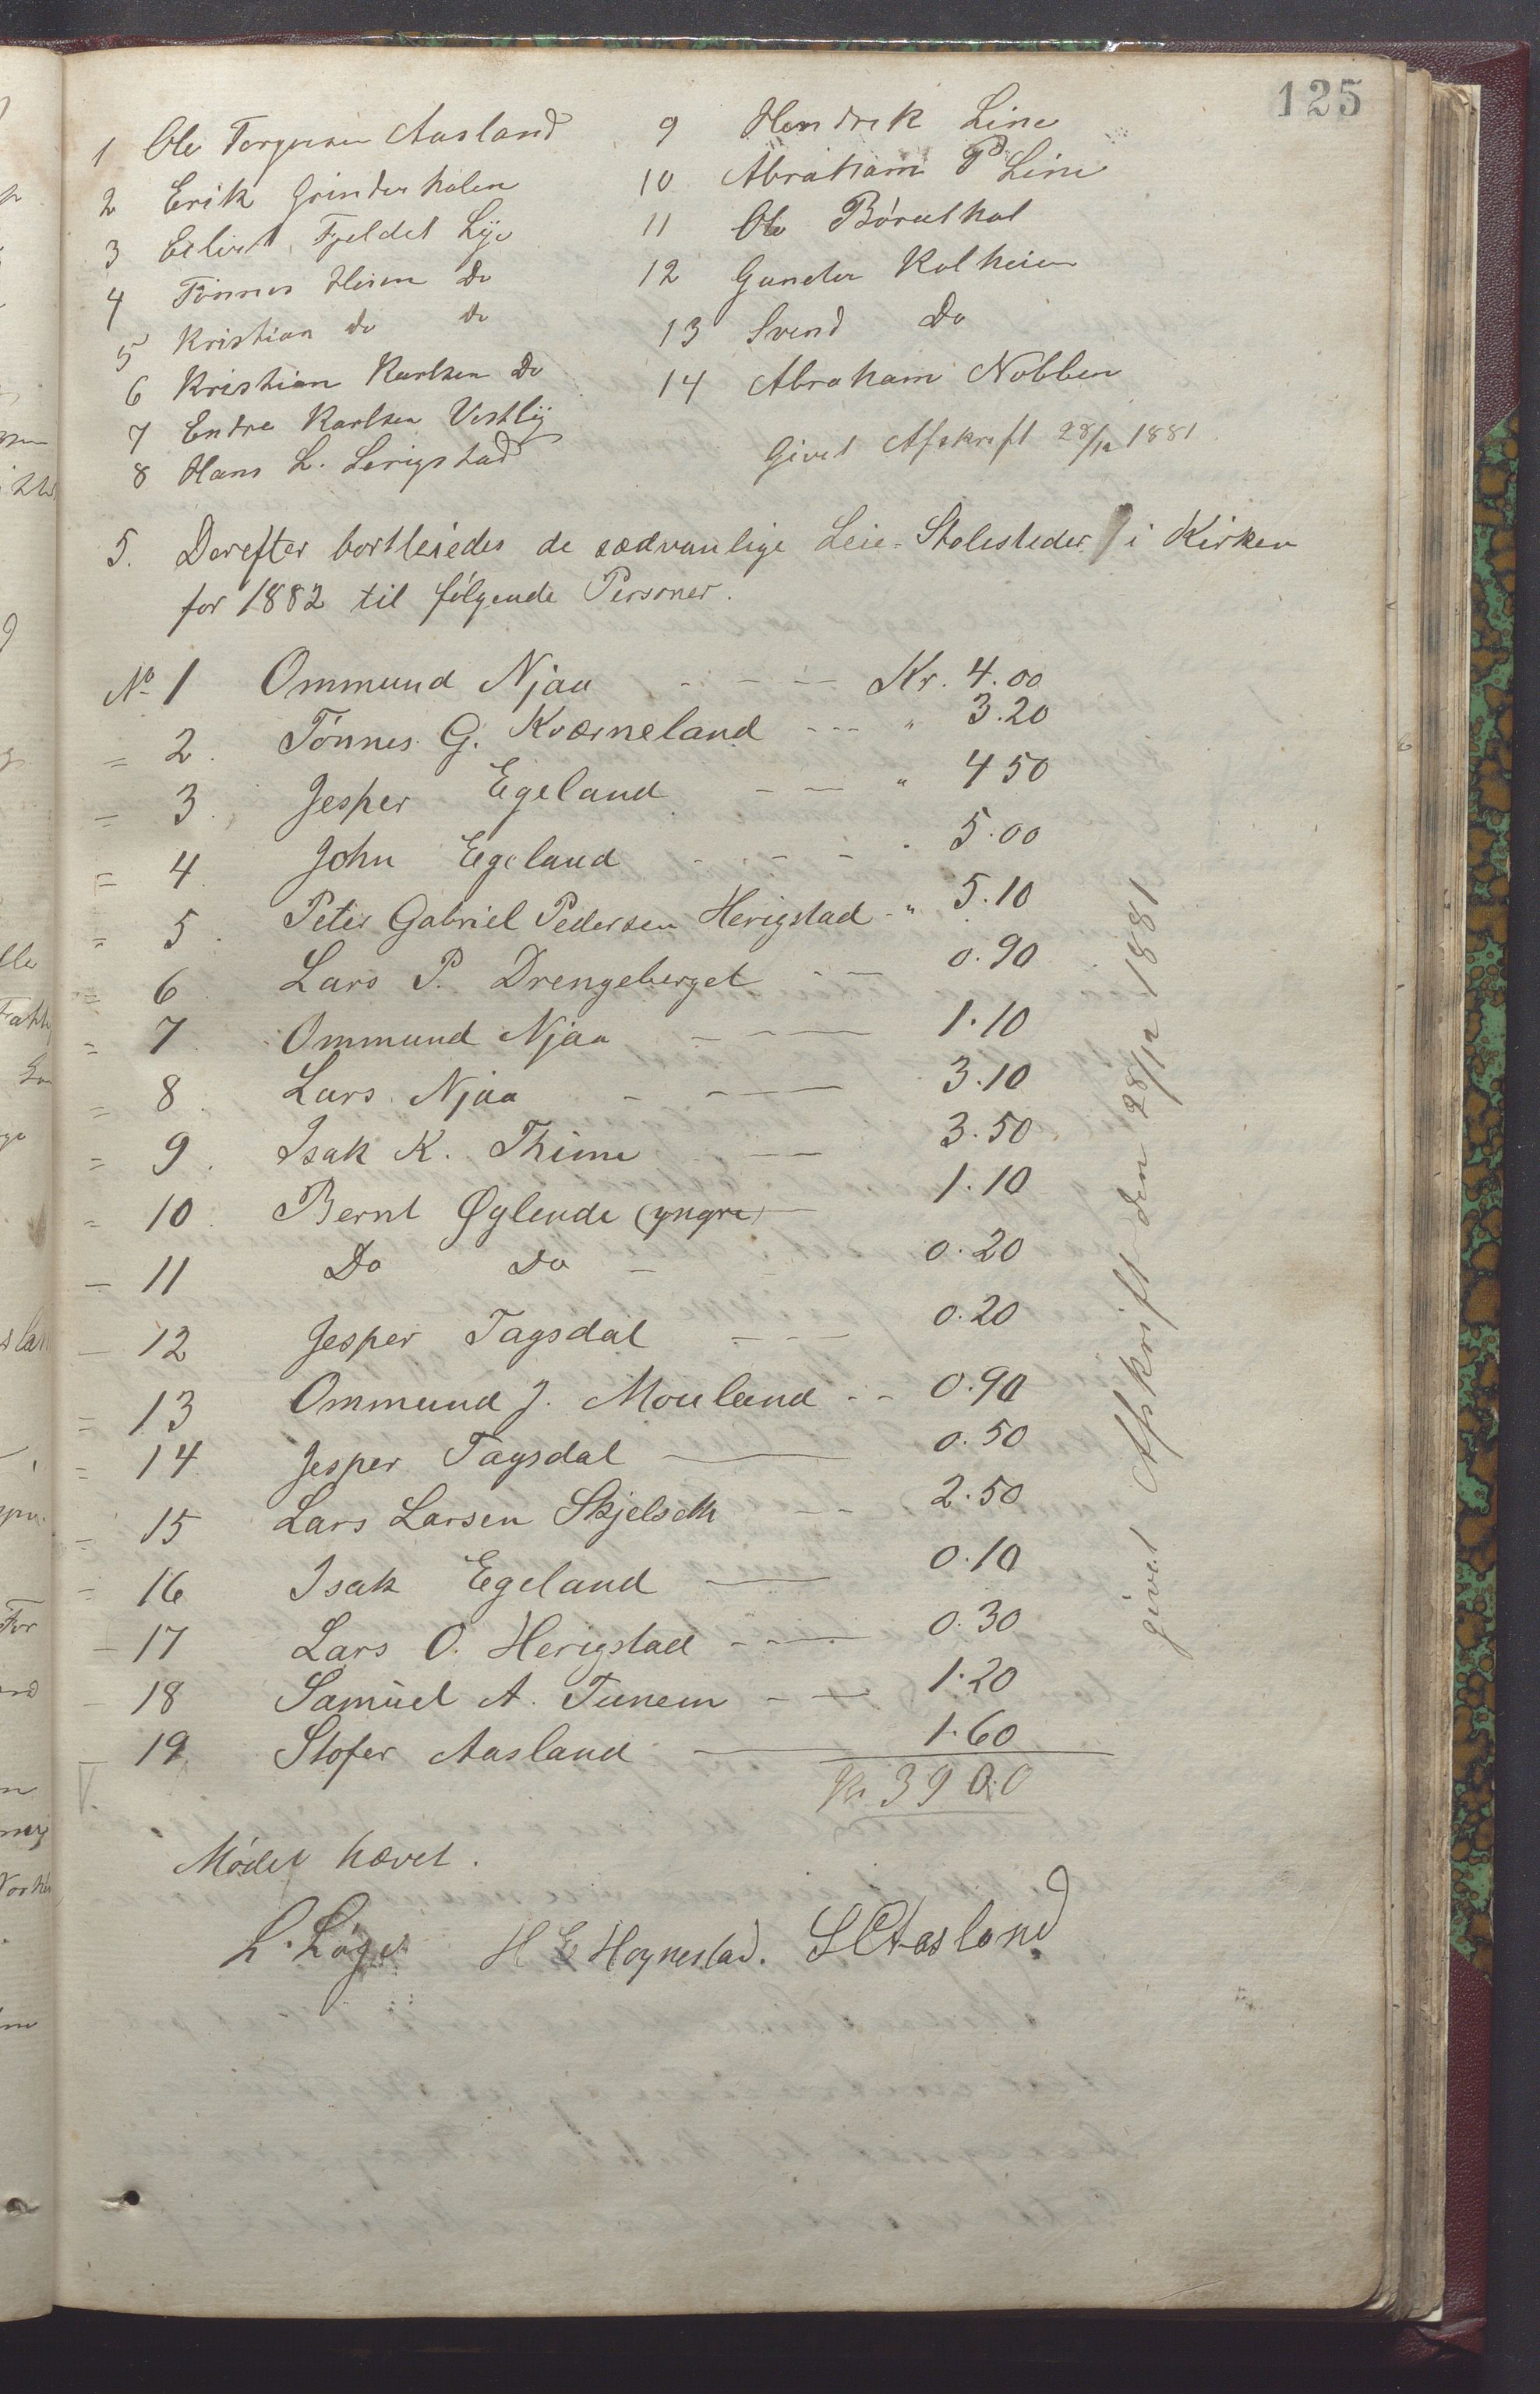 125
1 Ole Torgersen Aasland
2 Erik Grinderholen
3 Eilert Fjeldet Lye
4 Tønnes Heien Do
5 Kristian do do
6 Kristian Karlsen Do
7 Endre Karlsen Vestly
8 Hans L. Serigstad
9 Hendrek Line
10 Abraham P Line
11 Ole
12 Gunder Kalheien
13 Svend Do
14 Abraham Nobben
Givet Afskrift 28/12 1881
5. Derefter bortleiedes de sædvanlige Leie-Stolesteder i Kirken
for 1882 til følgende Personer.
No 1 Ommund Njaa - - - Kr. 4.00
= 2. Tönnes G. Kværneland --- " 3.20
= 3. Jesper Egeland - - " 4 50
= 4. John Egeland - - - " 5.00
= 5. Peter Gabriel Pedersen Herigstad - " 5.10
= 6. Lars P. Drengeberget - - 0.90
= 7. Ommund Njaa - — 1.10
= 8. Lars Njaa - - — 3.10
= 9. Isak K. Thime - — 3.50
= 10. Bernt Øglende (yngre) - 1.10
- 11 Do Do - 0.20
- 12 Jesper Tagsdal - - 0.20
= 13 Ommund J. Mouland - - 0.90
= 14 Jesper Tagsdal — 0.50
= 15 Lars Larsen Skjelseth - - 2.50
= 16 Isak Egeland — 0.10
- 17 Lars O. Herigstad - - - 0.30
- 18 Samuel A. Tunem - - 1.20
- 19. Stofer Aasland — 1.60
Kr 39 00
givet Afskrift den 28/12 1881
Mödet hævet.
L. Löge H E Hognestad. S C Aasland